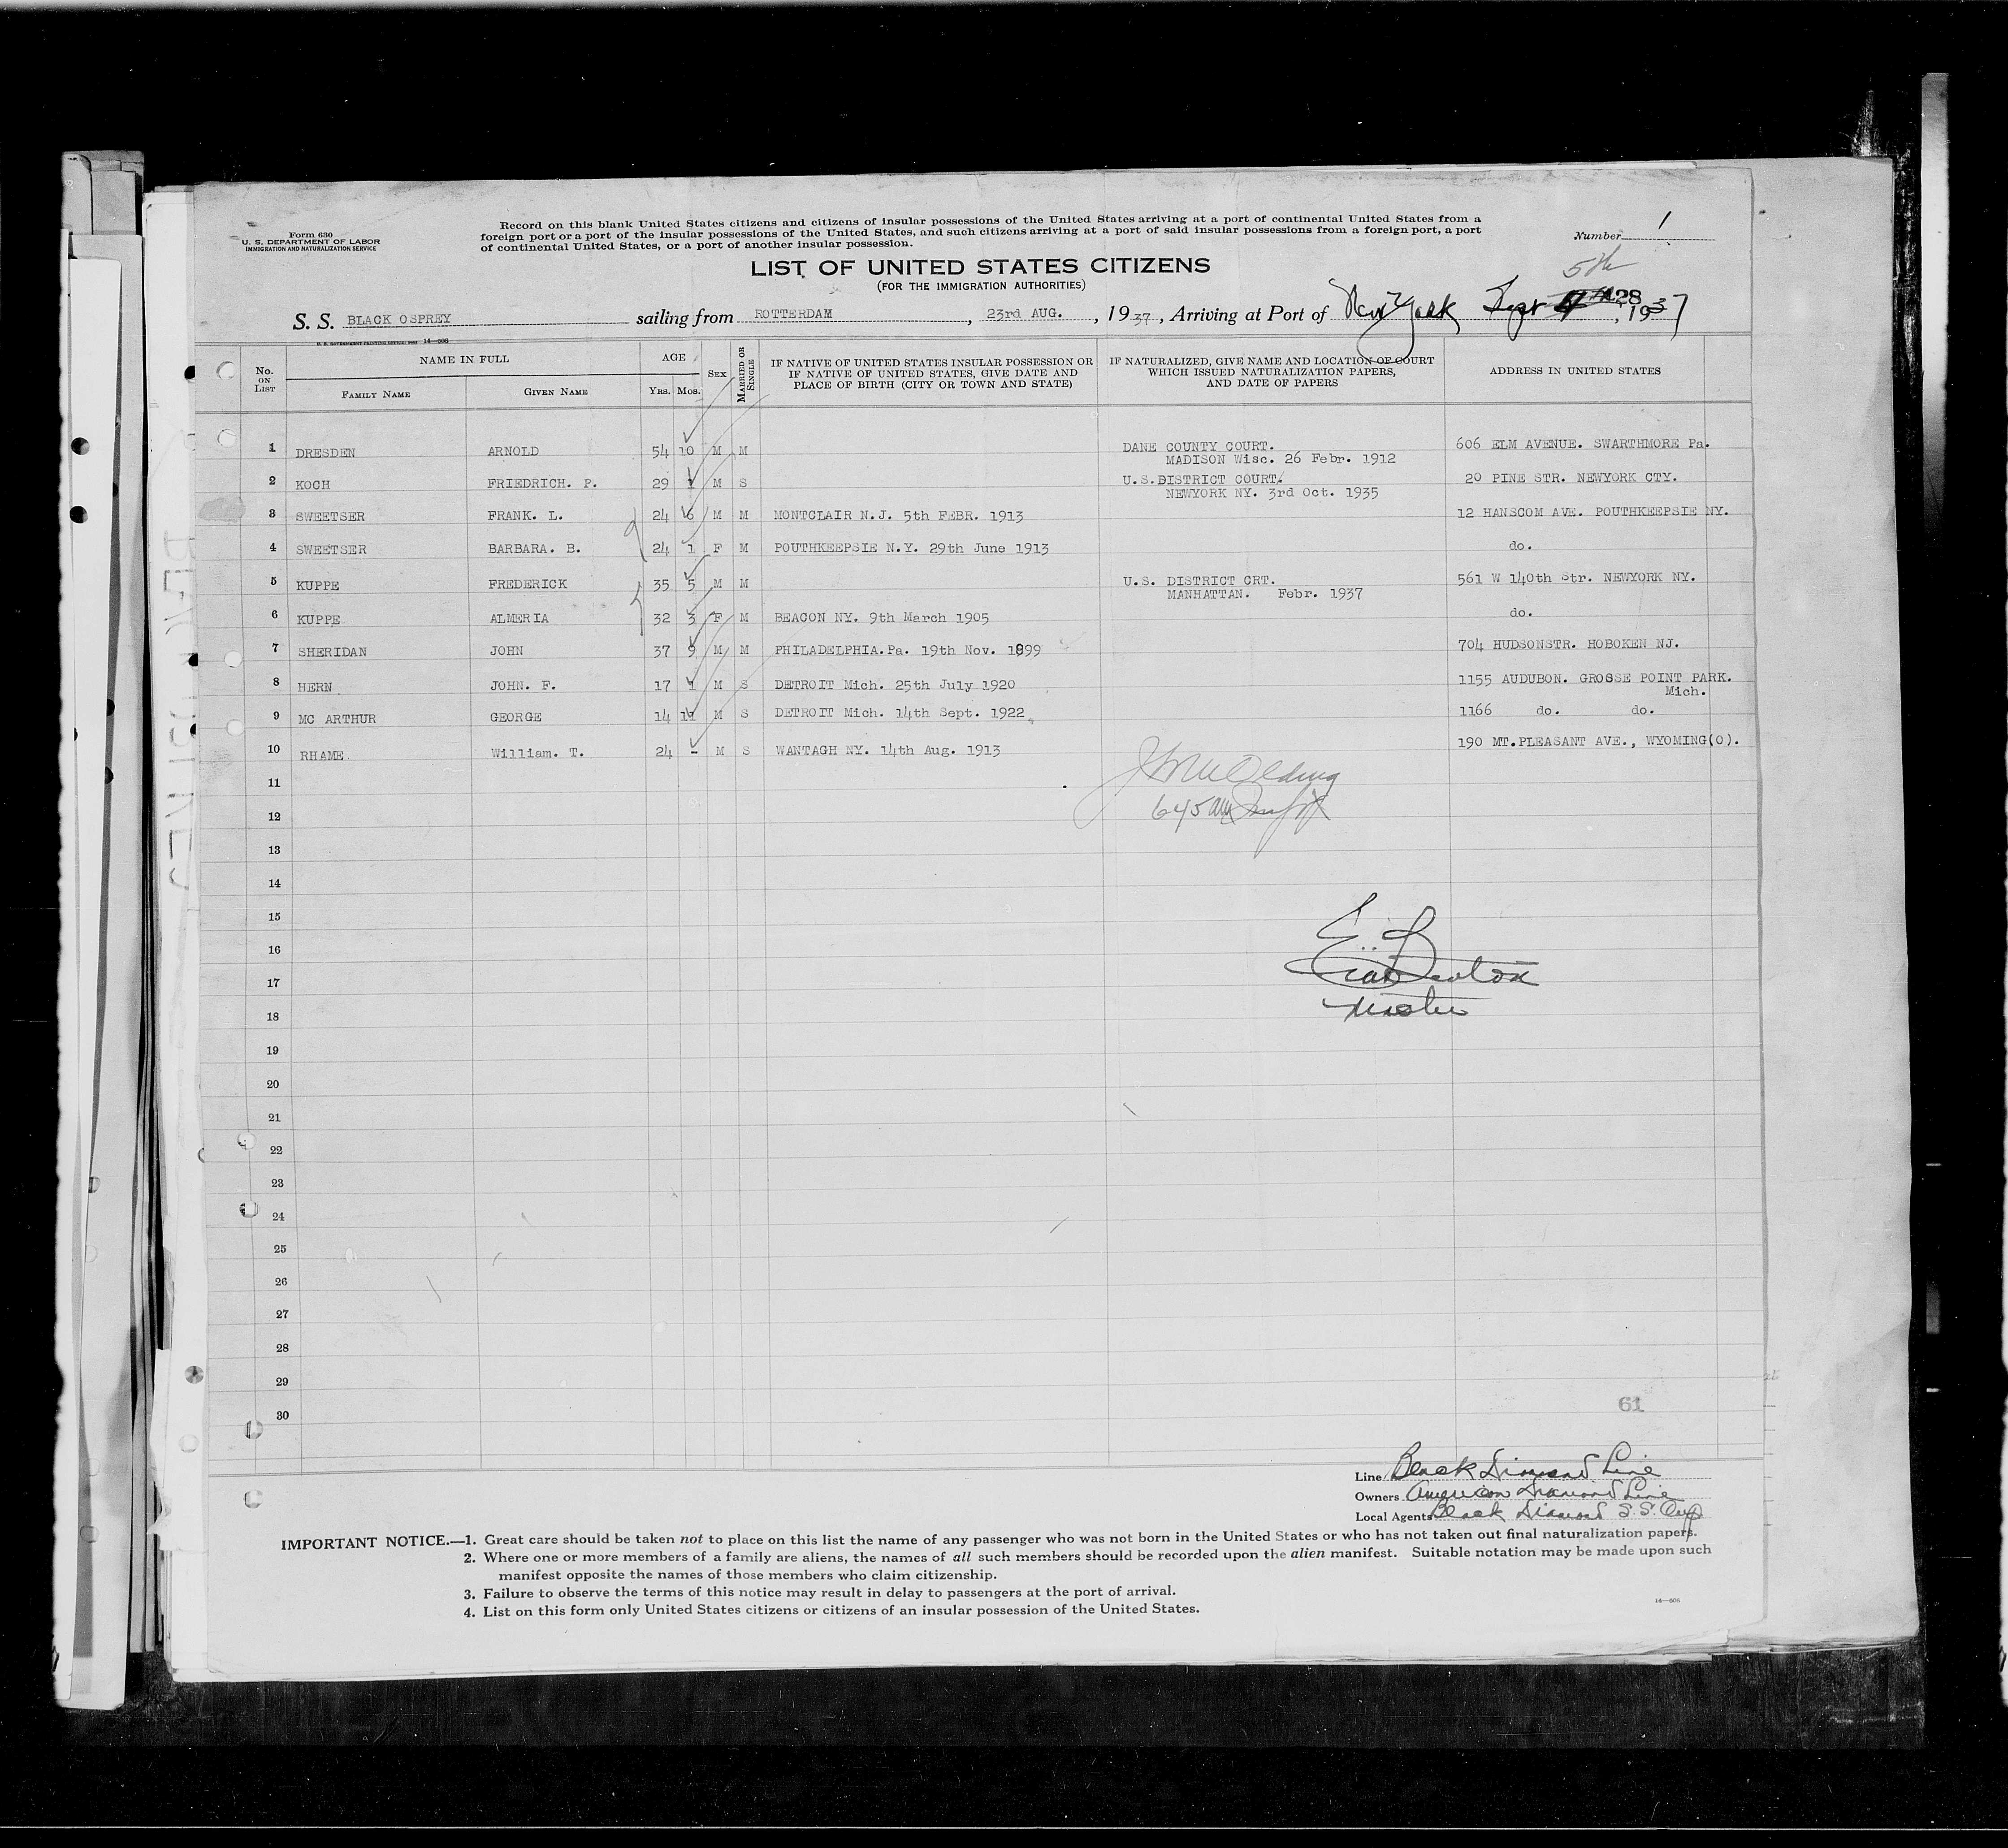 Form 630
U. S. DEPARTMENT OF LABOR
IMMIGRATION AND NATURALIZATION SERVICE
Record on this blank United States citizens and citizens of insular possessions of the United States arriving at a port of continental United States from a
foreign port or a port of the insular possessions of the United States, and such citizens arriving at a port of said insular possessions from a foreign port, a port
of continental United States, or a port of another insular possession.
Number 1
LIST OF UNITED STATES CITIZENS
(FOR THE IMMIGRATION AUTHORITIES)
5th
128
S. S. BLACK OSPREY sailing from ROTTERDAM, 23rd AUG., 1937, Arriving at Port of New York Sept 4, 1937
No. ON LIST
NAME IN FULL
FAMILY NAME GIVEN NAME
AGE
YRS. MOS.
SEX
MARRIED OR SINGLE
IF NATIVE OF UNITED STATES INSULAR POSSESSION OR
IF NATIVE OF UNITED STATES, GIVE DATE AND
PLACE OF BIRTH (CITY OR TOWN AND STATE)
IF NATURALIZED, GIVE NAME AND LOCATION OF COURT
WHICH ISSUED NATURALIZATION PAPERS,
AND DATE OF PAPERS
ADDRESS IN UNITED STATES
1 DRESDEN ARNOLD 54 10 M M DANE COUNTY COURT. 606 ELM AVENUE. SWARTHMORE Pa.
MADISON Wisc. 26 Febr. 1912
2 KOCH FRIEDRICH. P. 29 1 M S U.S.DISTRICT COURT. 20 PINE STR. NEWYORK CTY.
NEWYORK NY. 3rd Oct. 1935
3 SWEETSER FRANK. L. 24 6 M M MONTCLAIR N.J. 5th FEBR. 1913 12 HANSCOM AVE. POUTHKEEPSIE NY.
4 SWEETSER BARBARA. B. 24 1 F M POUTHKEEPSIE N.Y. 29th June 1913 do.
5 KUPPE FREDERICK 35 5 M M U.S. DISTRICT CRT. 561 W 140th Str. NEWYORK NY.
MANHATTAN. Febr. 1937
6 KUPPE ALMERIA 32 3 F M BEACON NY. 9th March 1905 do.
7 SHERIDAN JOHN 37 9 M M PHILADELPHIA.Pa. 19th Nov. 1899 704 HUDSONSTR. HOBOKEN NJ.
8 HERN JOHN. F. 17 1 M S DETROIT Mich. 25th July 1920 1155 AUDUBON. GROSSE POINT PARK.
Mich.
9 MC ARTHUR GEORGE 14 11 M S DETROIT Mich. 14th Sept. 1922 1166 do. do.
10 RHAME William. T. 24 - M S WANTAGH NY. 14th Aug. 1913 190 MT.PLEASANT AVE., WYOMING(O).
11
645 am
12
13
14
15
16
17
Master
18
19
20
21
22
23
24
25
26
27
28
29
30
61
Line Black Diamond Line
Owners American Diamond Line
Local Agents Black Diamond S.S. Corp
IMPORTANT NOTICE.—1. Great care should be taken not to place on this list the name of any passenger who was not born in the United States or who has not taken out final naturalization papers.
2. Where one or more members of a family are aliens, the names of all such members should be recorded upon the alien manifest. Suitable notation may be made upon such
manifest opposite the names of those members who claim citizenship.
3. Failure to observe the terms of this notice may result in delay to passengers at the port of arrival.
4. List on this form only United States citizens or citizens of an insular possession of the United States.